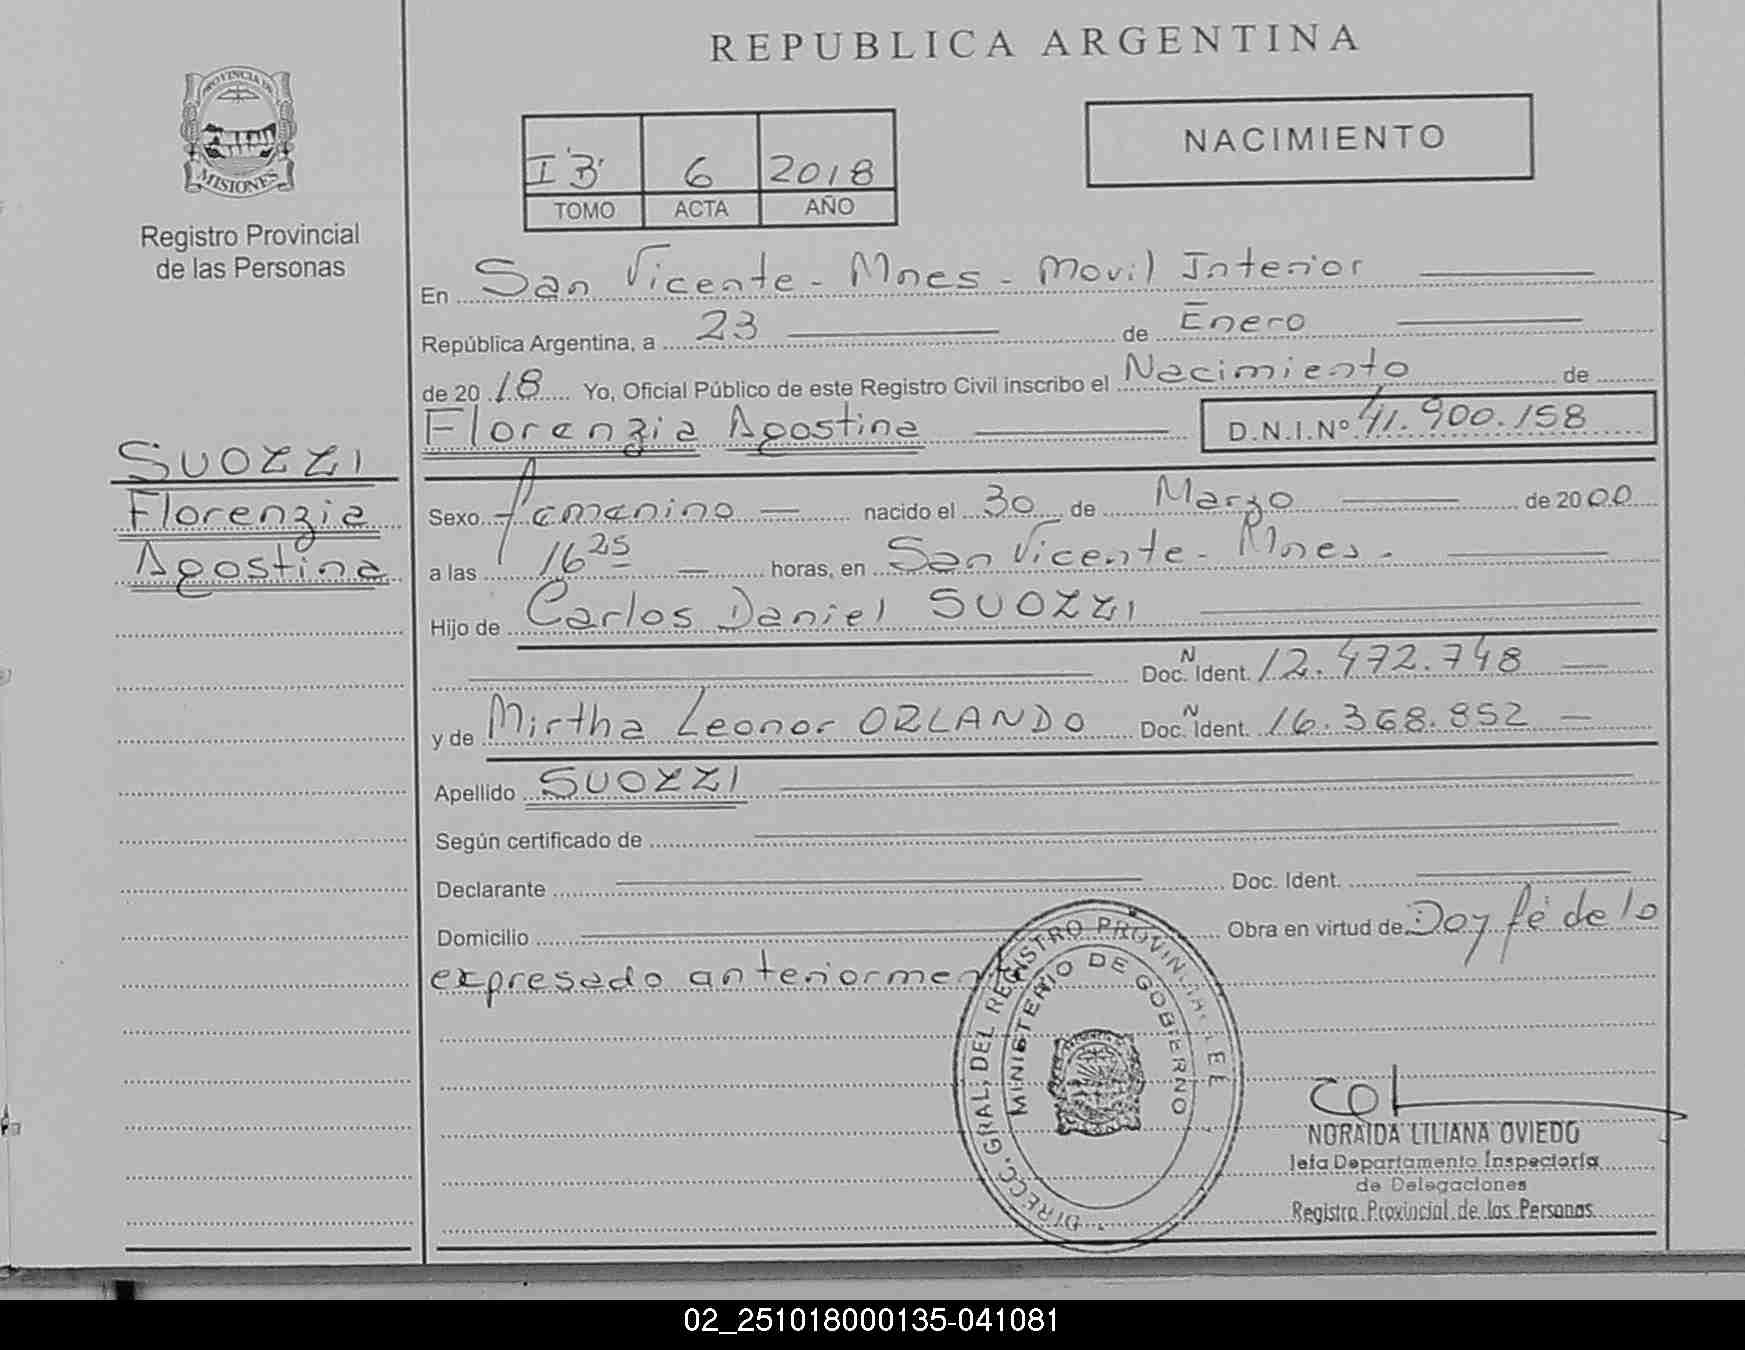 REPUBLICA ARGENTINA
PROVINCIA DE
MISIONES
Registro Provincial
de las Personas
I "B" 6 2018
TOMO ACTA AÑO
NACIMIENTO
En San Vicente - Mnes - Movil Interior
República Argentina, a 23 de Enero
de 2018 Yo, Oficial Público de este Registro Civil inscribo el Nacimiento de
Florenzia Agostina D.N.I.Nº 41.900.158
SUOZZI
Florenzia
Agostina
Sexo femenino nacido el 30 de Marzo de 2000
a las 16 25 horas, en San Vicente - Mnes -
Hijo de Carlos Daniel SUOZZI
Doc. N Ident. 12.472.748
y de Mirtha Leonor ORLANDO Doc. N Ident. 16.368.852
Apellido SUOZZI
Según certificado de
Declarante Doc. Ident.
Domicilio Obra en virtud de Doy fé de lo
expresado anteriormente
DIRECC. GRAL. DEL REGISTRO PROVINCIAL DE
MINISTERIO DE GOBIERNO
NORAIDA LILIANA OVIEDO
Jefa Departamento Inspectoría
de Delegaciones
Registro Provincial de las Personas
02_251018000135-041081